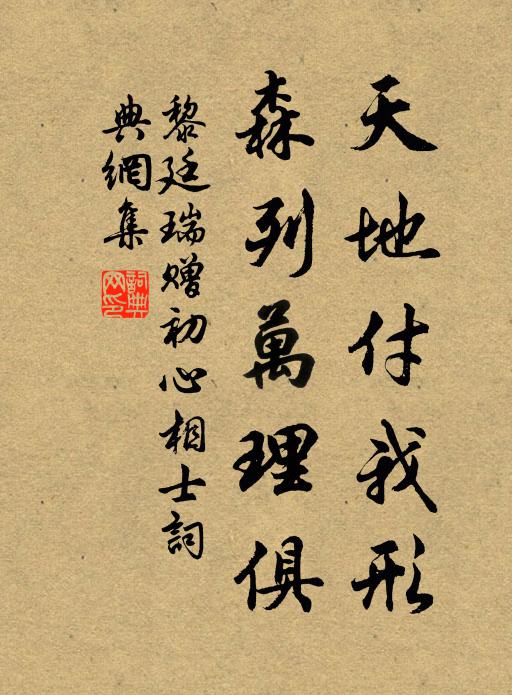 天地付我形
森列萬理俱
黎廷瑞贈初心相士詞
典網集
詞典
网印